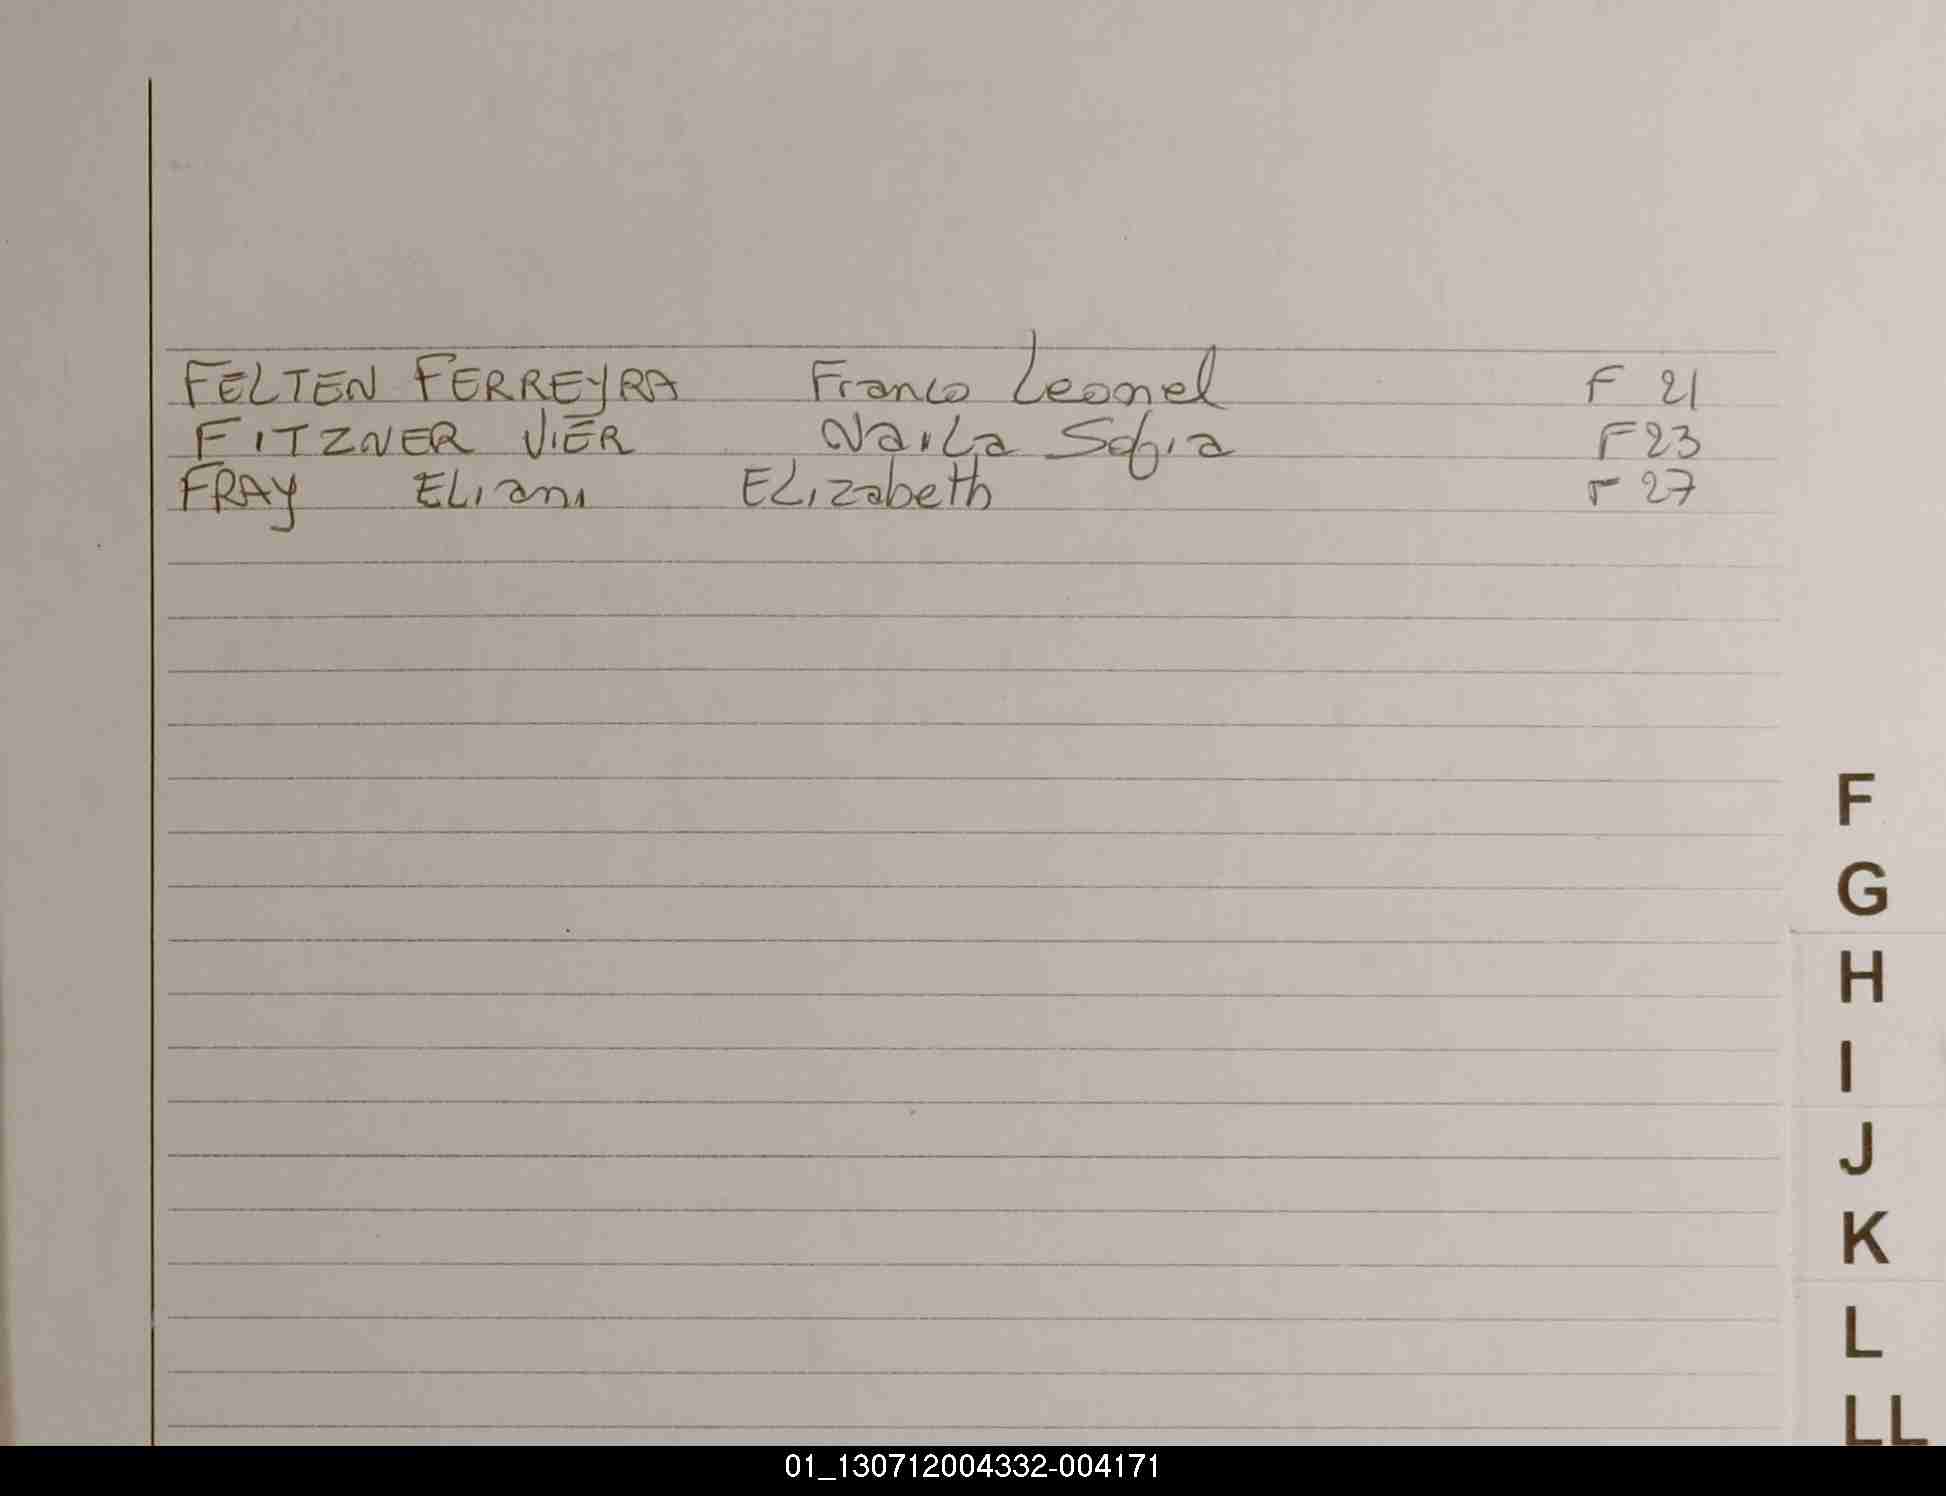 FELTEN FERREYRA Franco Leonel F 21
FITZNER VIER Naila Sofia F 23
FRAY Eliani Elizabeth F 27
F
G
H
I
J
K
L
LL
01_130712004332-004171